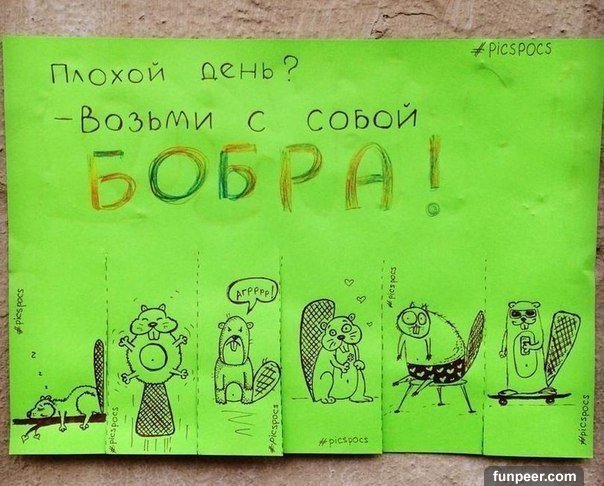 #PICSPOCS
Плохой день?
-Возьми с собой
БОБРА!
#picspocs
z
z
#picspocs
Агрррр!
#picspocs
#picspocs
#picspocs
#picspocs
funpeer.com